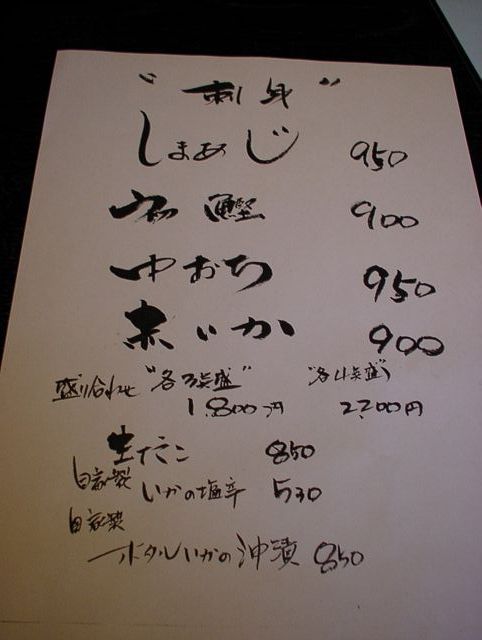 "刺身"
しまあじ 950
初鰹 900
中おち 950
赤いか 900
盛り合わせ "各3点盛" "各4点盛"
1,800円 2,200円
生たこ 850
自家製 いかの塩辛 530
自家製
ホタルいかの沖漬 850